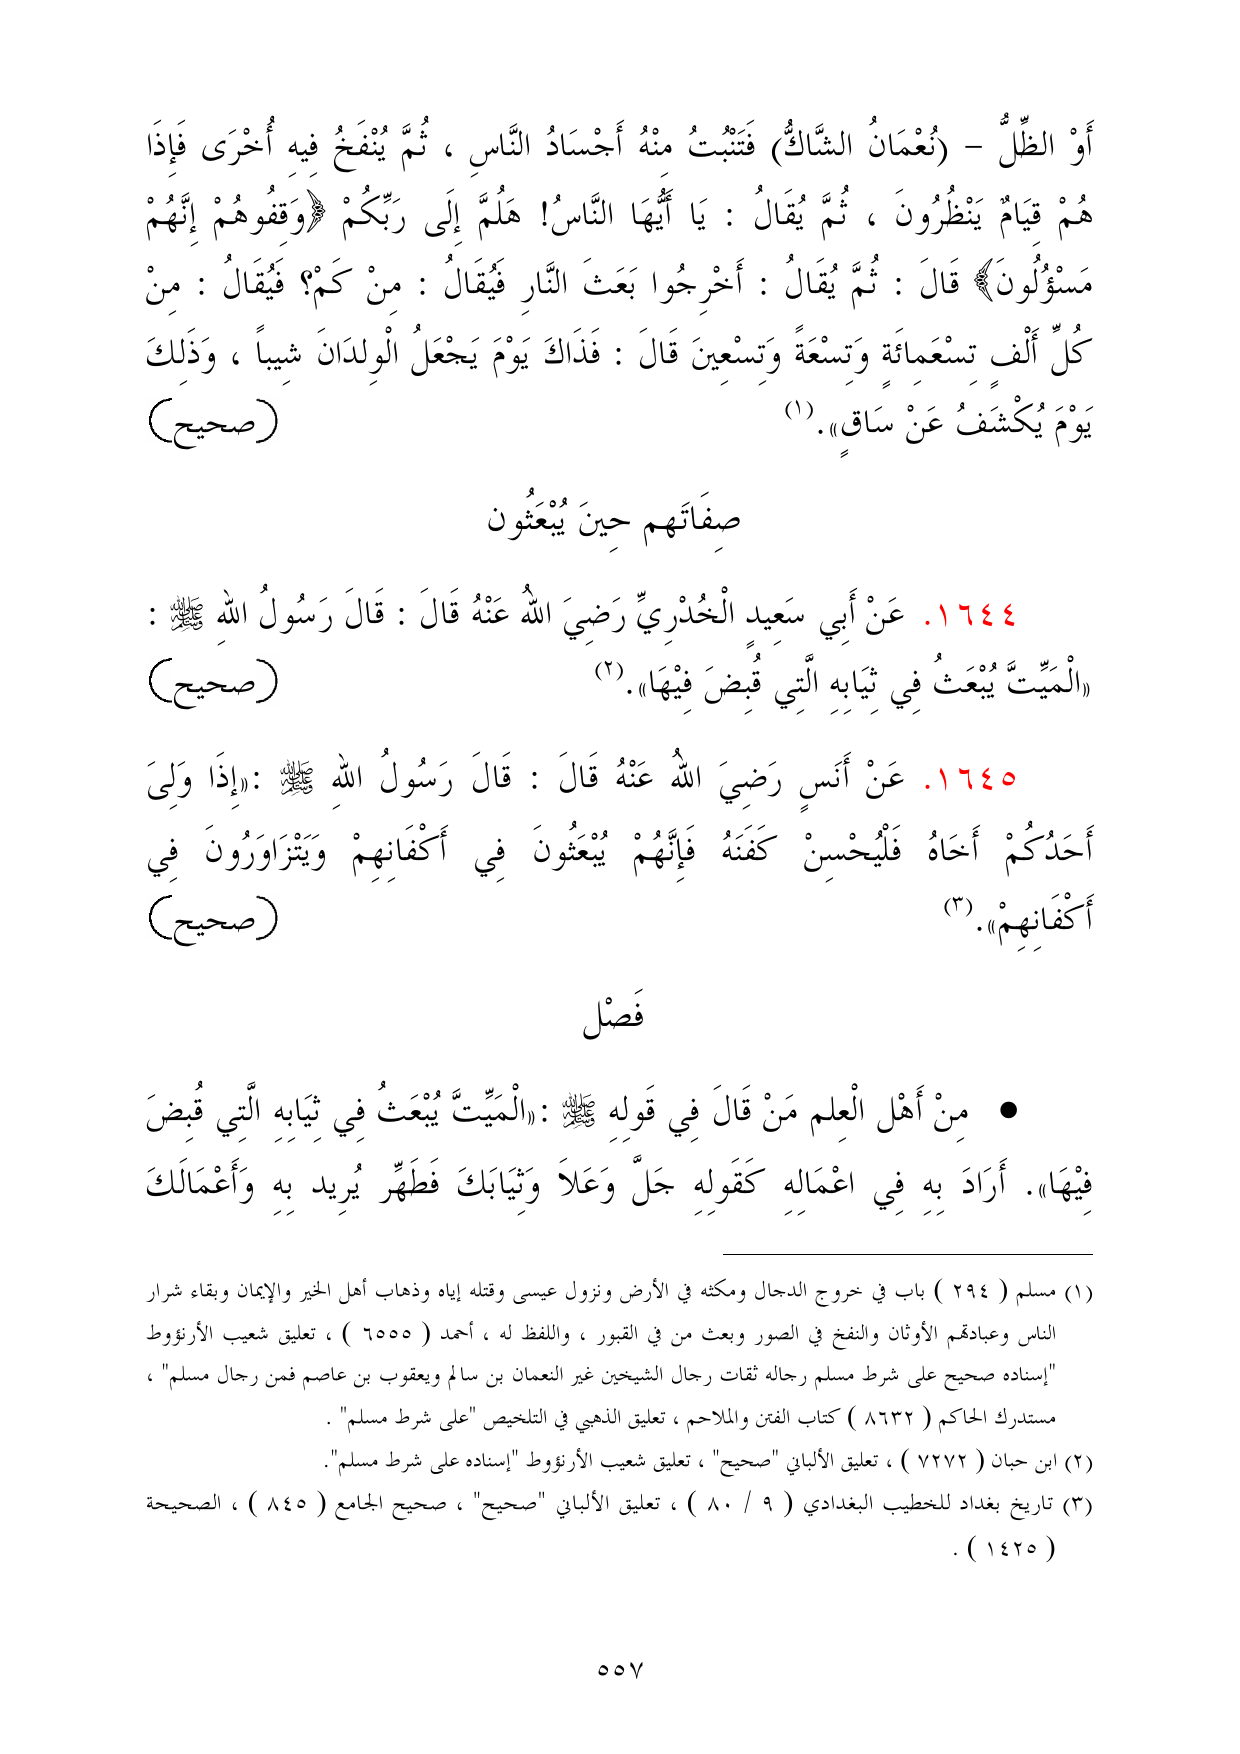 أَوْ الظِّلُّ – (نُعْمَانُ الشَّاكُّ) فَتَنْبُتُ مِنْهُ أَجْسَادُ النَّاسِ ، ثُمَّ يُنْفَخُ فِيهِ أُخْرَى فَإِذَا
هُمْ قِيَامٌ يَنْظُرُونَ ، ثُمَّ يُقَالُ : يَا أَيُّهَا النَّاسُ! هَلُمَّ إِلَى رَبِّكُمْ ﴿وَقِفُوهُمْ إِنَّهُمْ
مَسْؤُلُونَ﴾ قَالَ : ثُمَّ يُقَالُ : أَخْرِجُوا بَعَثَ النَّارِ فَيُقَالُ : مِنْ كَمْ؟ فَيُقَالُ : مِنْ
كُلِّ أَلْفٍ تِسْعَمِائَةٍ وَتِسْعَةً وَتِسْعِينَ قَالَ : فَذَاكَ يَوْمَ يَجْعَلُ الْوِلدَانَ شِيباً ، وَذَلِكَ
يَوْمَ يُكْشَفُ عَنْ سَاقٍ».(١) (صحيح)
صِفَاتَهم حِينَ يُبْعَثُون
١٦٤٤. عَنْ أَبِي سَعِيدٍ الْخُدْرِيِّ رَضِيَ اللهُ عَنْهُ قَالَ : قَالَ رَسُولُ اللهِ ﷺ :
«الْمَيِّتَّ يُبْعَثُ فِي ثِيَابِهِ الَّتِي قُبِضَ فِيْهَا».(٢) (صحيح)
١٦٤٥. عَنْ أَنَسٍ رَضِيَ اللهُ عَنْهُ قَالَ : قَالَ رَسُولُ اللهِ ﷺ :«إِذَا وَلِىَ
أَحَدُكُمْ أَخَاهُ فَلْيُحْسِنْ كَفَنَهُ فَإِنَّهُمْ يُبْعَثُونَ فِي أَكْفَانِهِمْ وَيَتْزَاوَرُونَ فِي
أَكْفَانِهِمْ».(٣) (صحيح)
فَصْل
● مِنْ أَهْل الْعِلم مَنْ قَالَ فِي قَولِهِ ﷺ :«الْمَيِّتَّ يُبْعَثُ فِي ثِيَابِهِ الَّتِي قُبِضَ
فِيْهَا». أَرَادَ بِهِ فِي اعْمَالِهِ كَقَولِهِ جَلَّ وَعَلاَ وَثِيَابَكَ فَطَهِّر يُرِيد بِهِ وَأَعْمَالَكَ
(١) مسلم ( ٢٩٤ ) باب في خروج الدجال ومكثه في الأرض ونزول عيسى وقتله إياه وذهاب أهل الخير والإيمان وبقاء شرار
الناس وعبادتهم الأوثان والنفخ في الصور وبعث من في القبور ، واللفظ له ، أحمد ( ٦٥٥٥ ) ، تعليق شعيب الأرنؤوط
"إسناده صحيح على شرط مسلم رجاله ثقات رجال الشيخين غير النعمان بن سالم ويعقوب بن عاصم فمن رجال مسلم" ،
مستدرك الحاكم ( ٨٦٣٢ ) كتاب الفتن والملاحم ، تعليق الذهبي في التلخيص "على شرط مسلم" .
(٢) ابن حبان ( ٧٢٧٢ ) ، تعليق الألباني "صحيح" ، تعليق شعيب الأرنؤوط "إسناده على شرط مسلم".
(٣) تاريخ بغداد للخطيب البغدادي ( ٩ / ٨٠ ) ، تعليق الألباني "صحيح" ، صحيح الجامع ( ٨٤٥ ) ، الصحيحة
( ١٤٢٥ ) .
٥٥٧